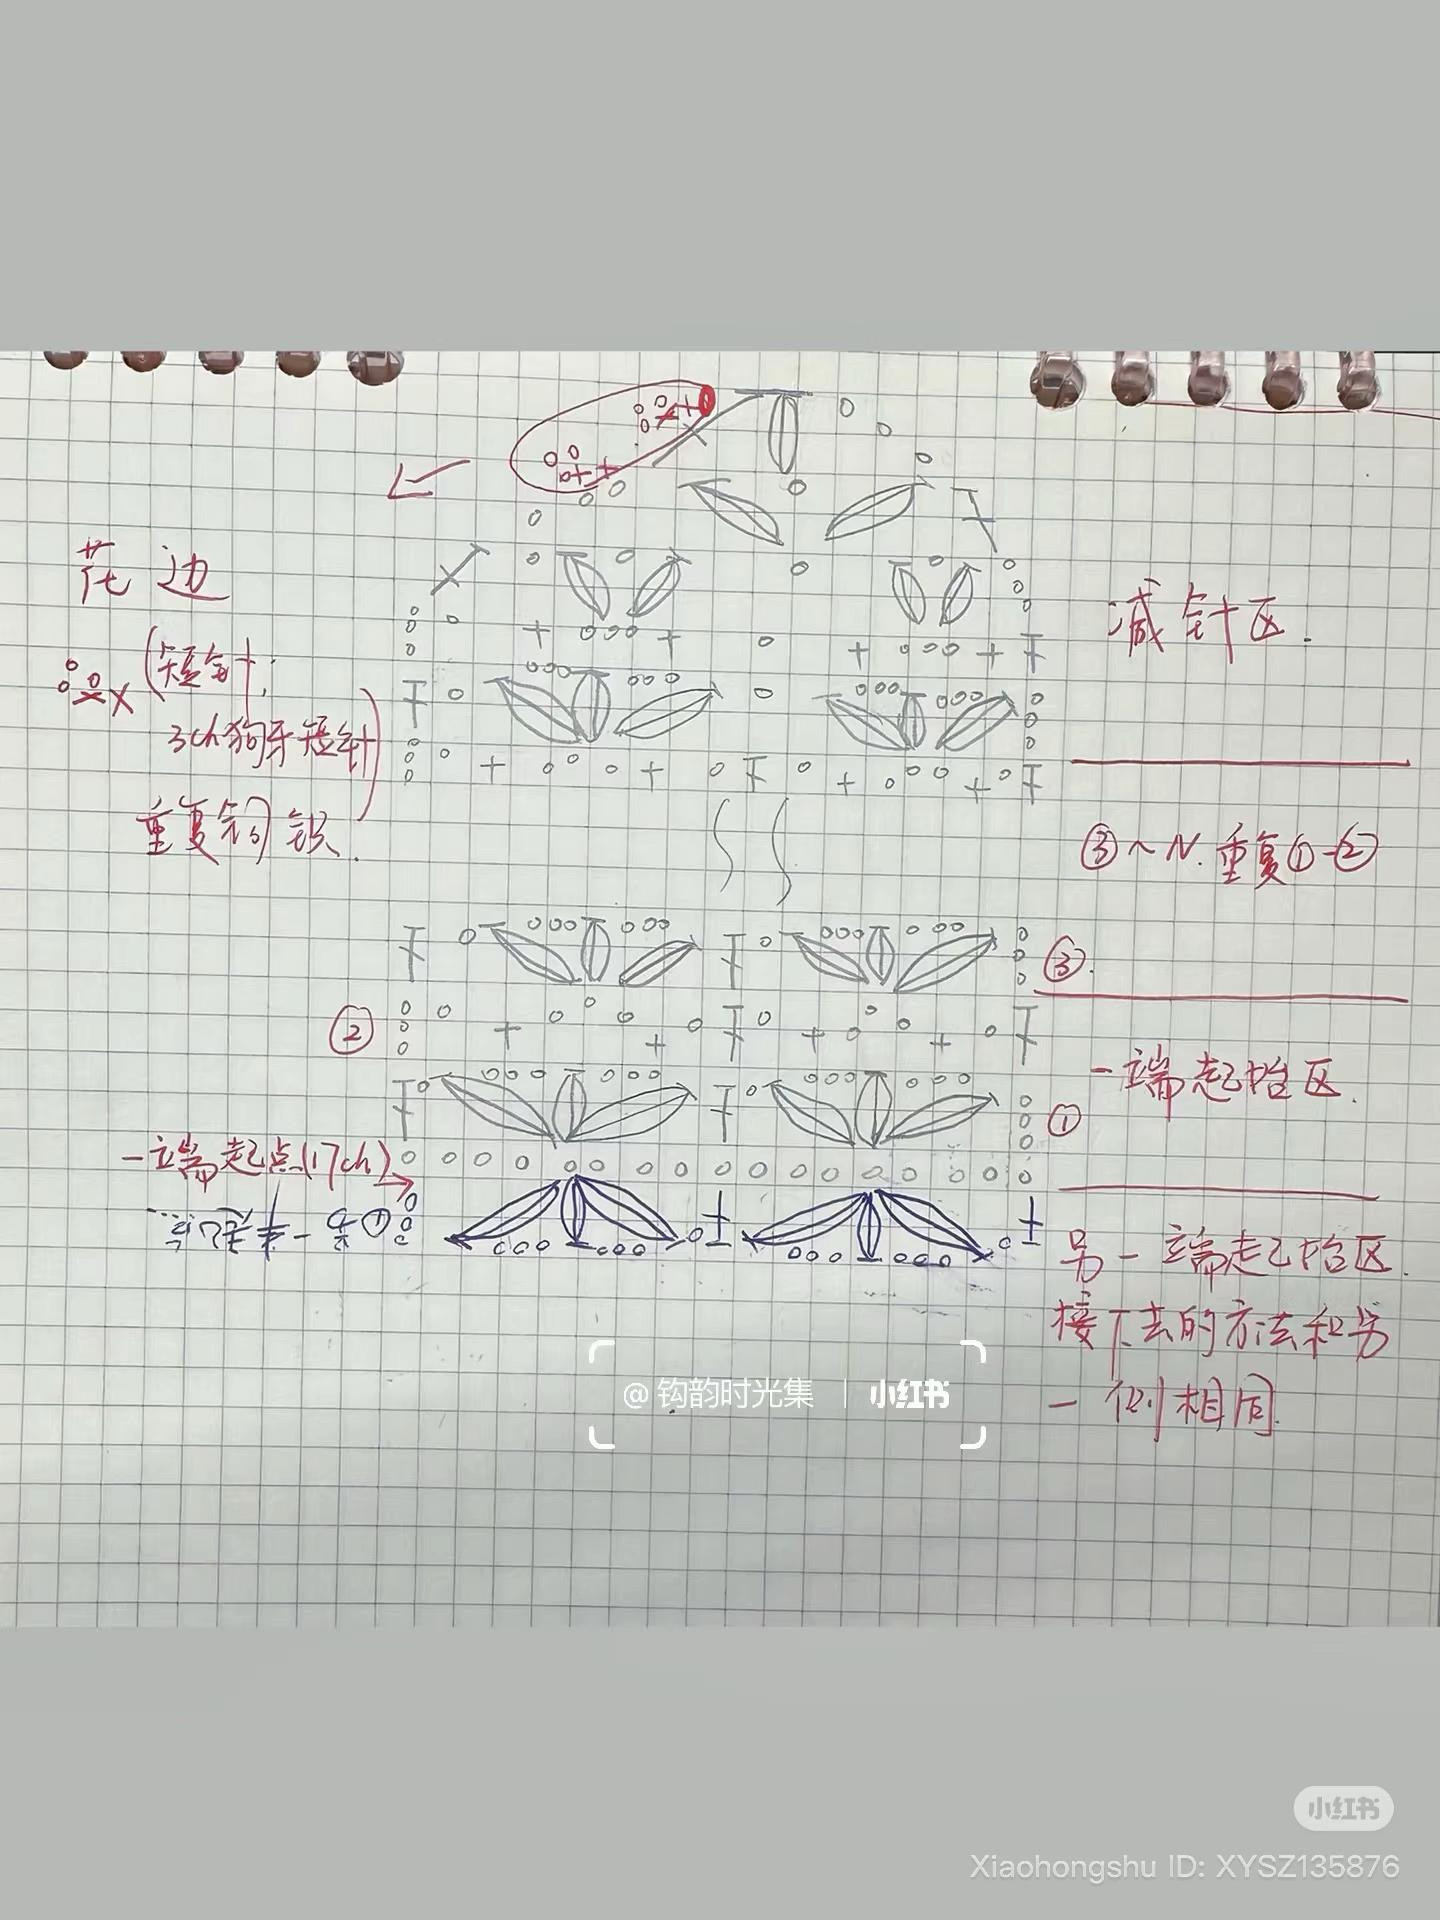 花边
(短针,
3ch狗牙短针)
重复钩织.
减针区.
③~N.重复①-②
③.
②
一端起始区.
①
一端起点(17ch)
另一端起始区.
接下去的方法和另
一侧相同.
@钩韵时光集 | 小红书
小红书
Xiaohongshu ID: XYSZ135876